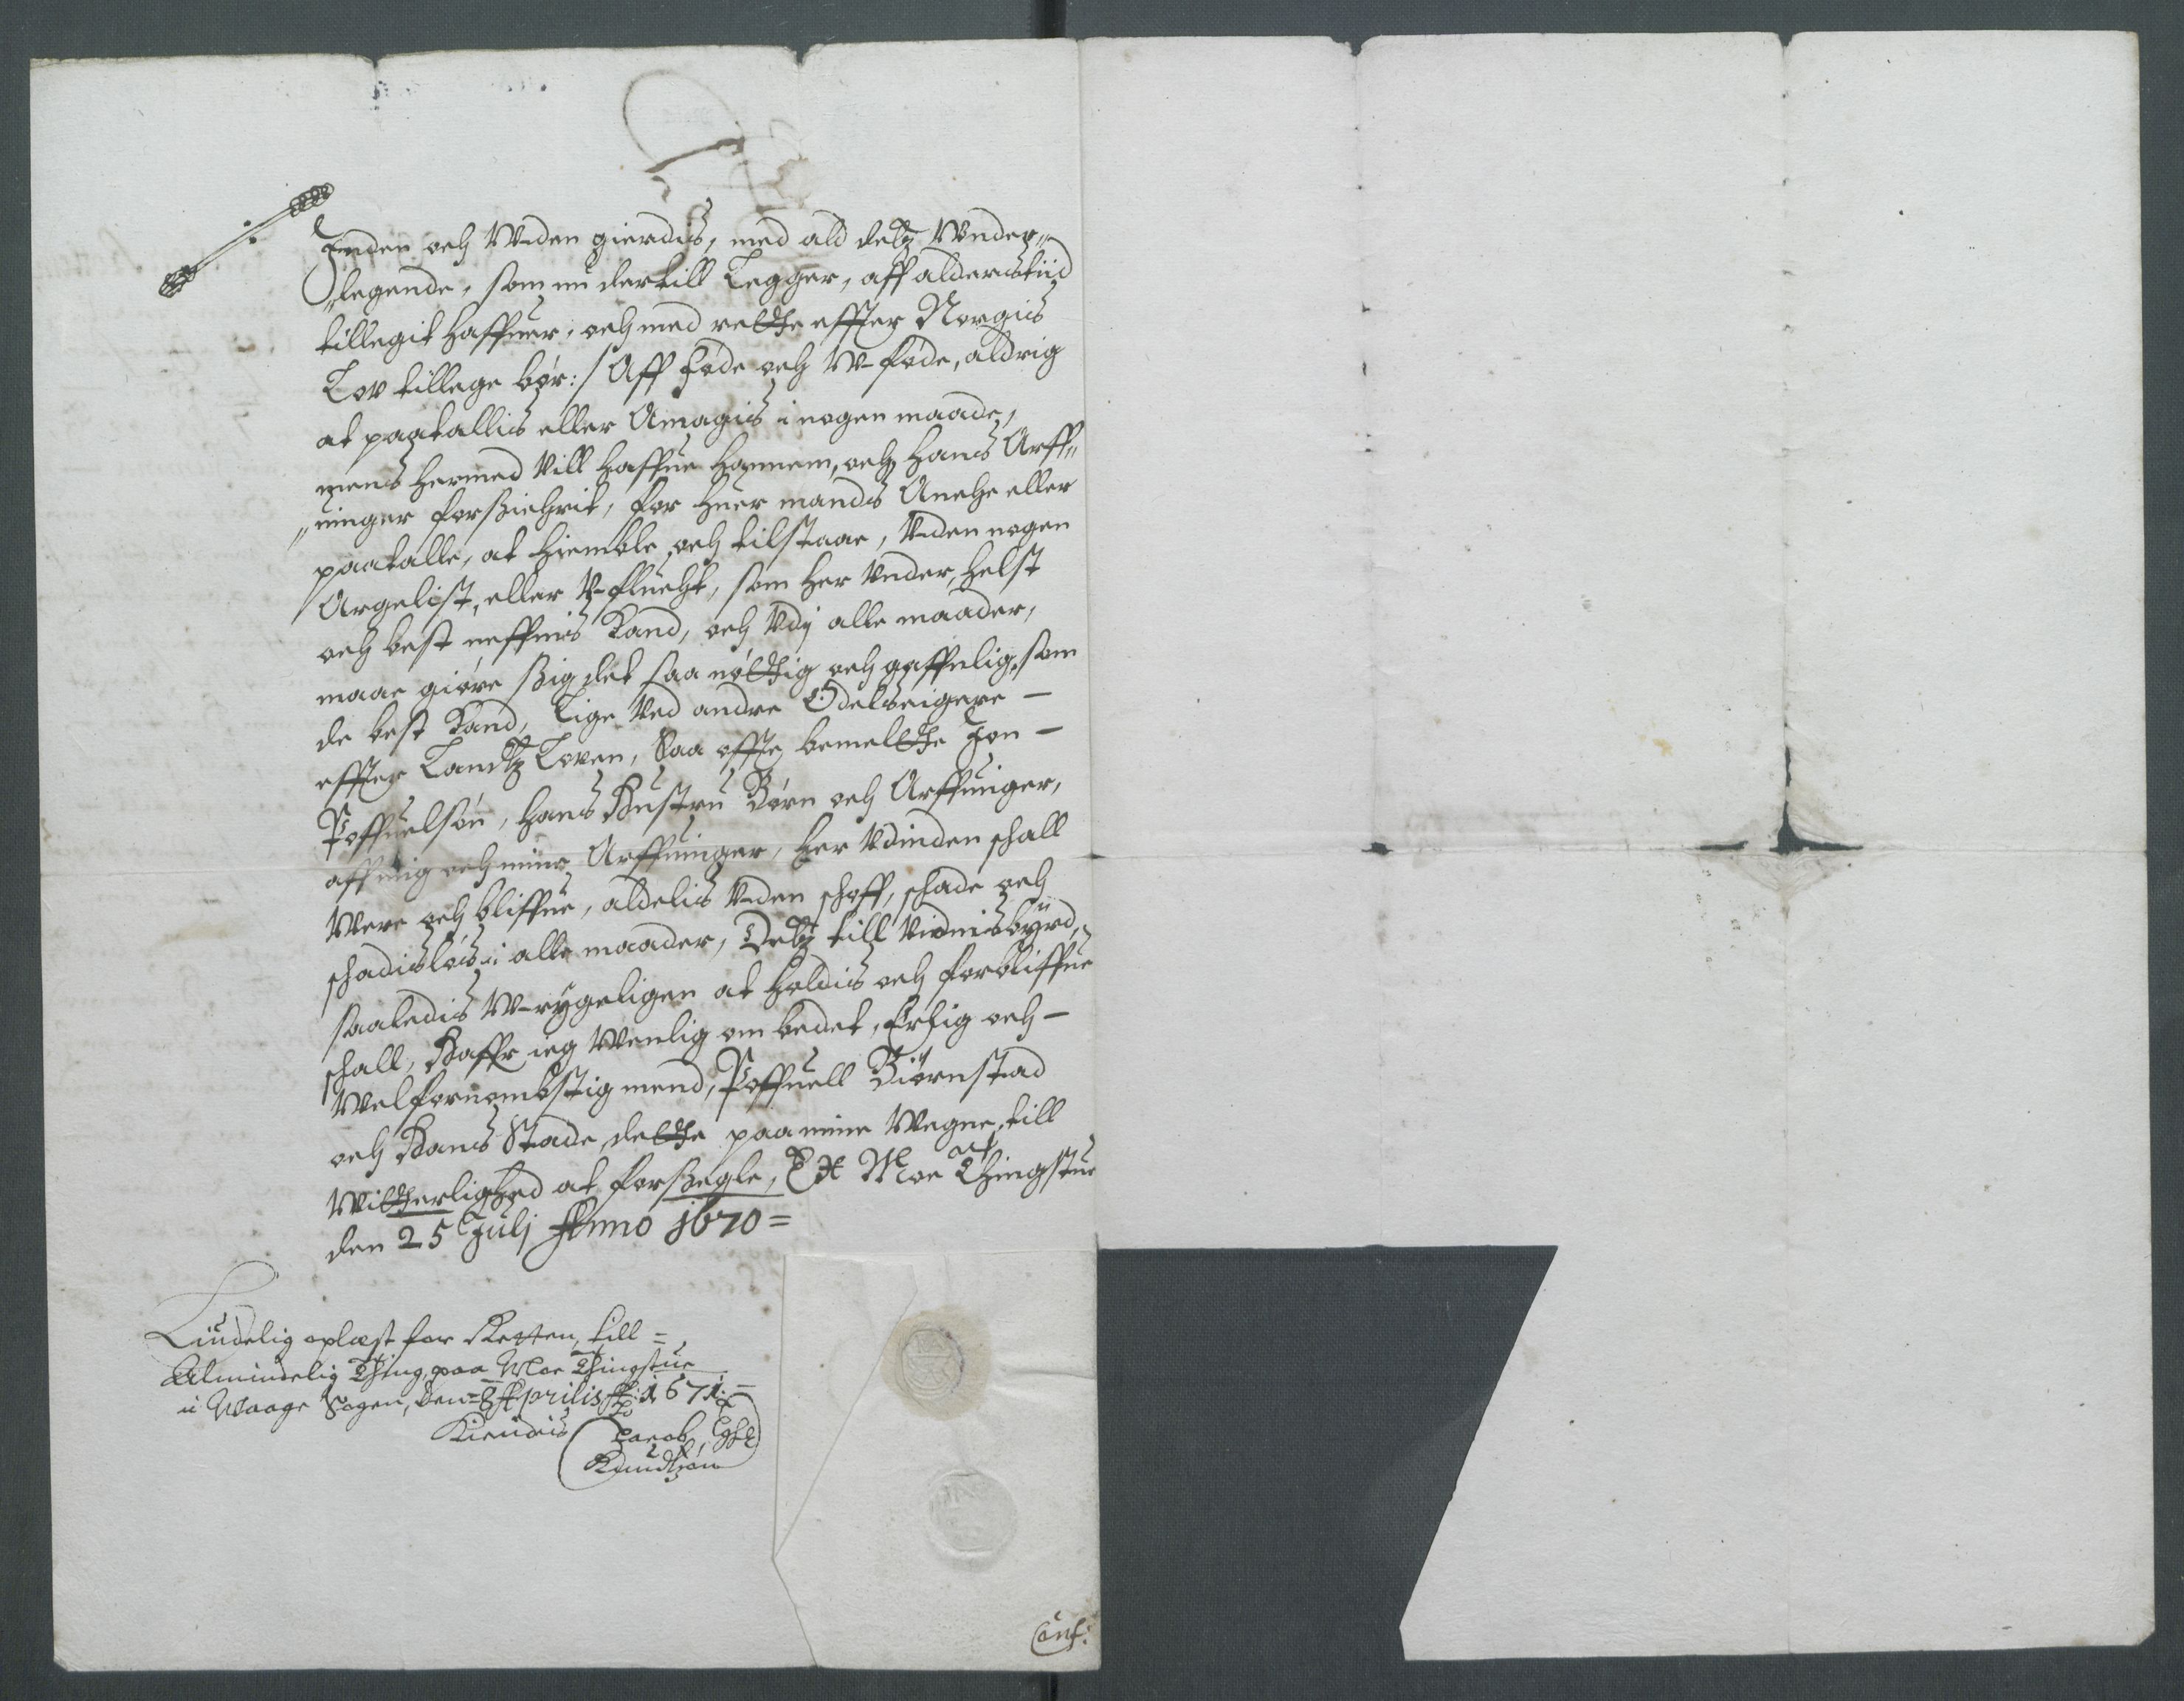 Inden och Wden gierdis, med ald dets Wnder„
„legende, som nu dertill Legger, aff alderstiid
tillegit haffuer, och med rette effter Norgis
Lov tillege bør: / Aff føde och W-føde, aldrig
at paatallis eller Anagis i nogen maade,
mens hermed vill haffue hannem, och hans Arff„
„uinger forsichrit, for huer mands Anche eller
paatalle, at hiemble och tilstaae, Vden nogen
Argelist, eller V-flucht, som her Vnder, helst
och best neffnis Kand, och Vdj alle maader,
maae giøre sig det saa nøttig och gaffnlig, som
de best Kand, Lige Ved andre Odelseigere —
effter Landtz Loven, Saa offte bemelte Jon —
Poffuelsøn, hans Hustru Børn och Arffuinger,
aff mig och mine Arffuinger, her Vdinden schall
Were och bliffue, aldelis Vden schoff, schade och
schadisløs i alle maader, Dets till Vidnisbyrd,
saaledis W-rygeligen at holdis och forbliffue
schall, Haffr ieg Wenlig om bedet, Erlig och —
Welfornombstig mend, Poffuell Biørnstad
och Hans Stade, dette paa mine Wegne, till
Witterlighed at forsegle, Ex Moe Thingstue
den 25 Julj Anno 1670 =
Liudelig oplæst for Retten, till =
Almindelig Thing, paa Moe Thingstue
i Waage Sogen, den = 8 Aprilis Ao: 1671 =
Kiendis Jacob
Knudtzøn
Conf: